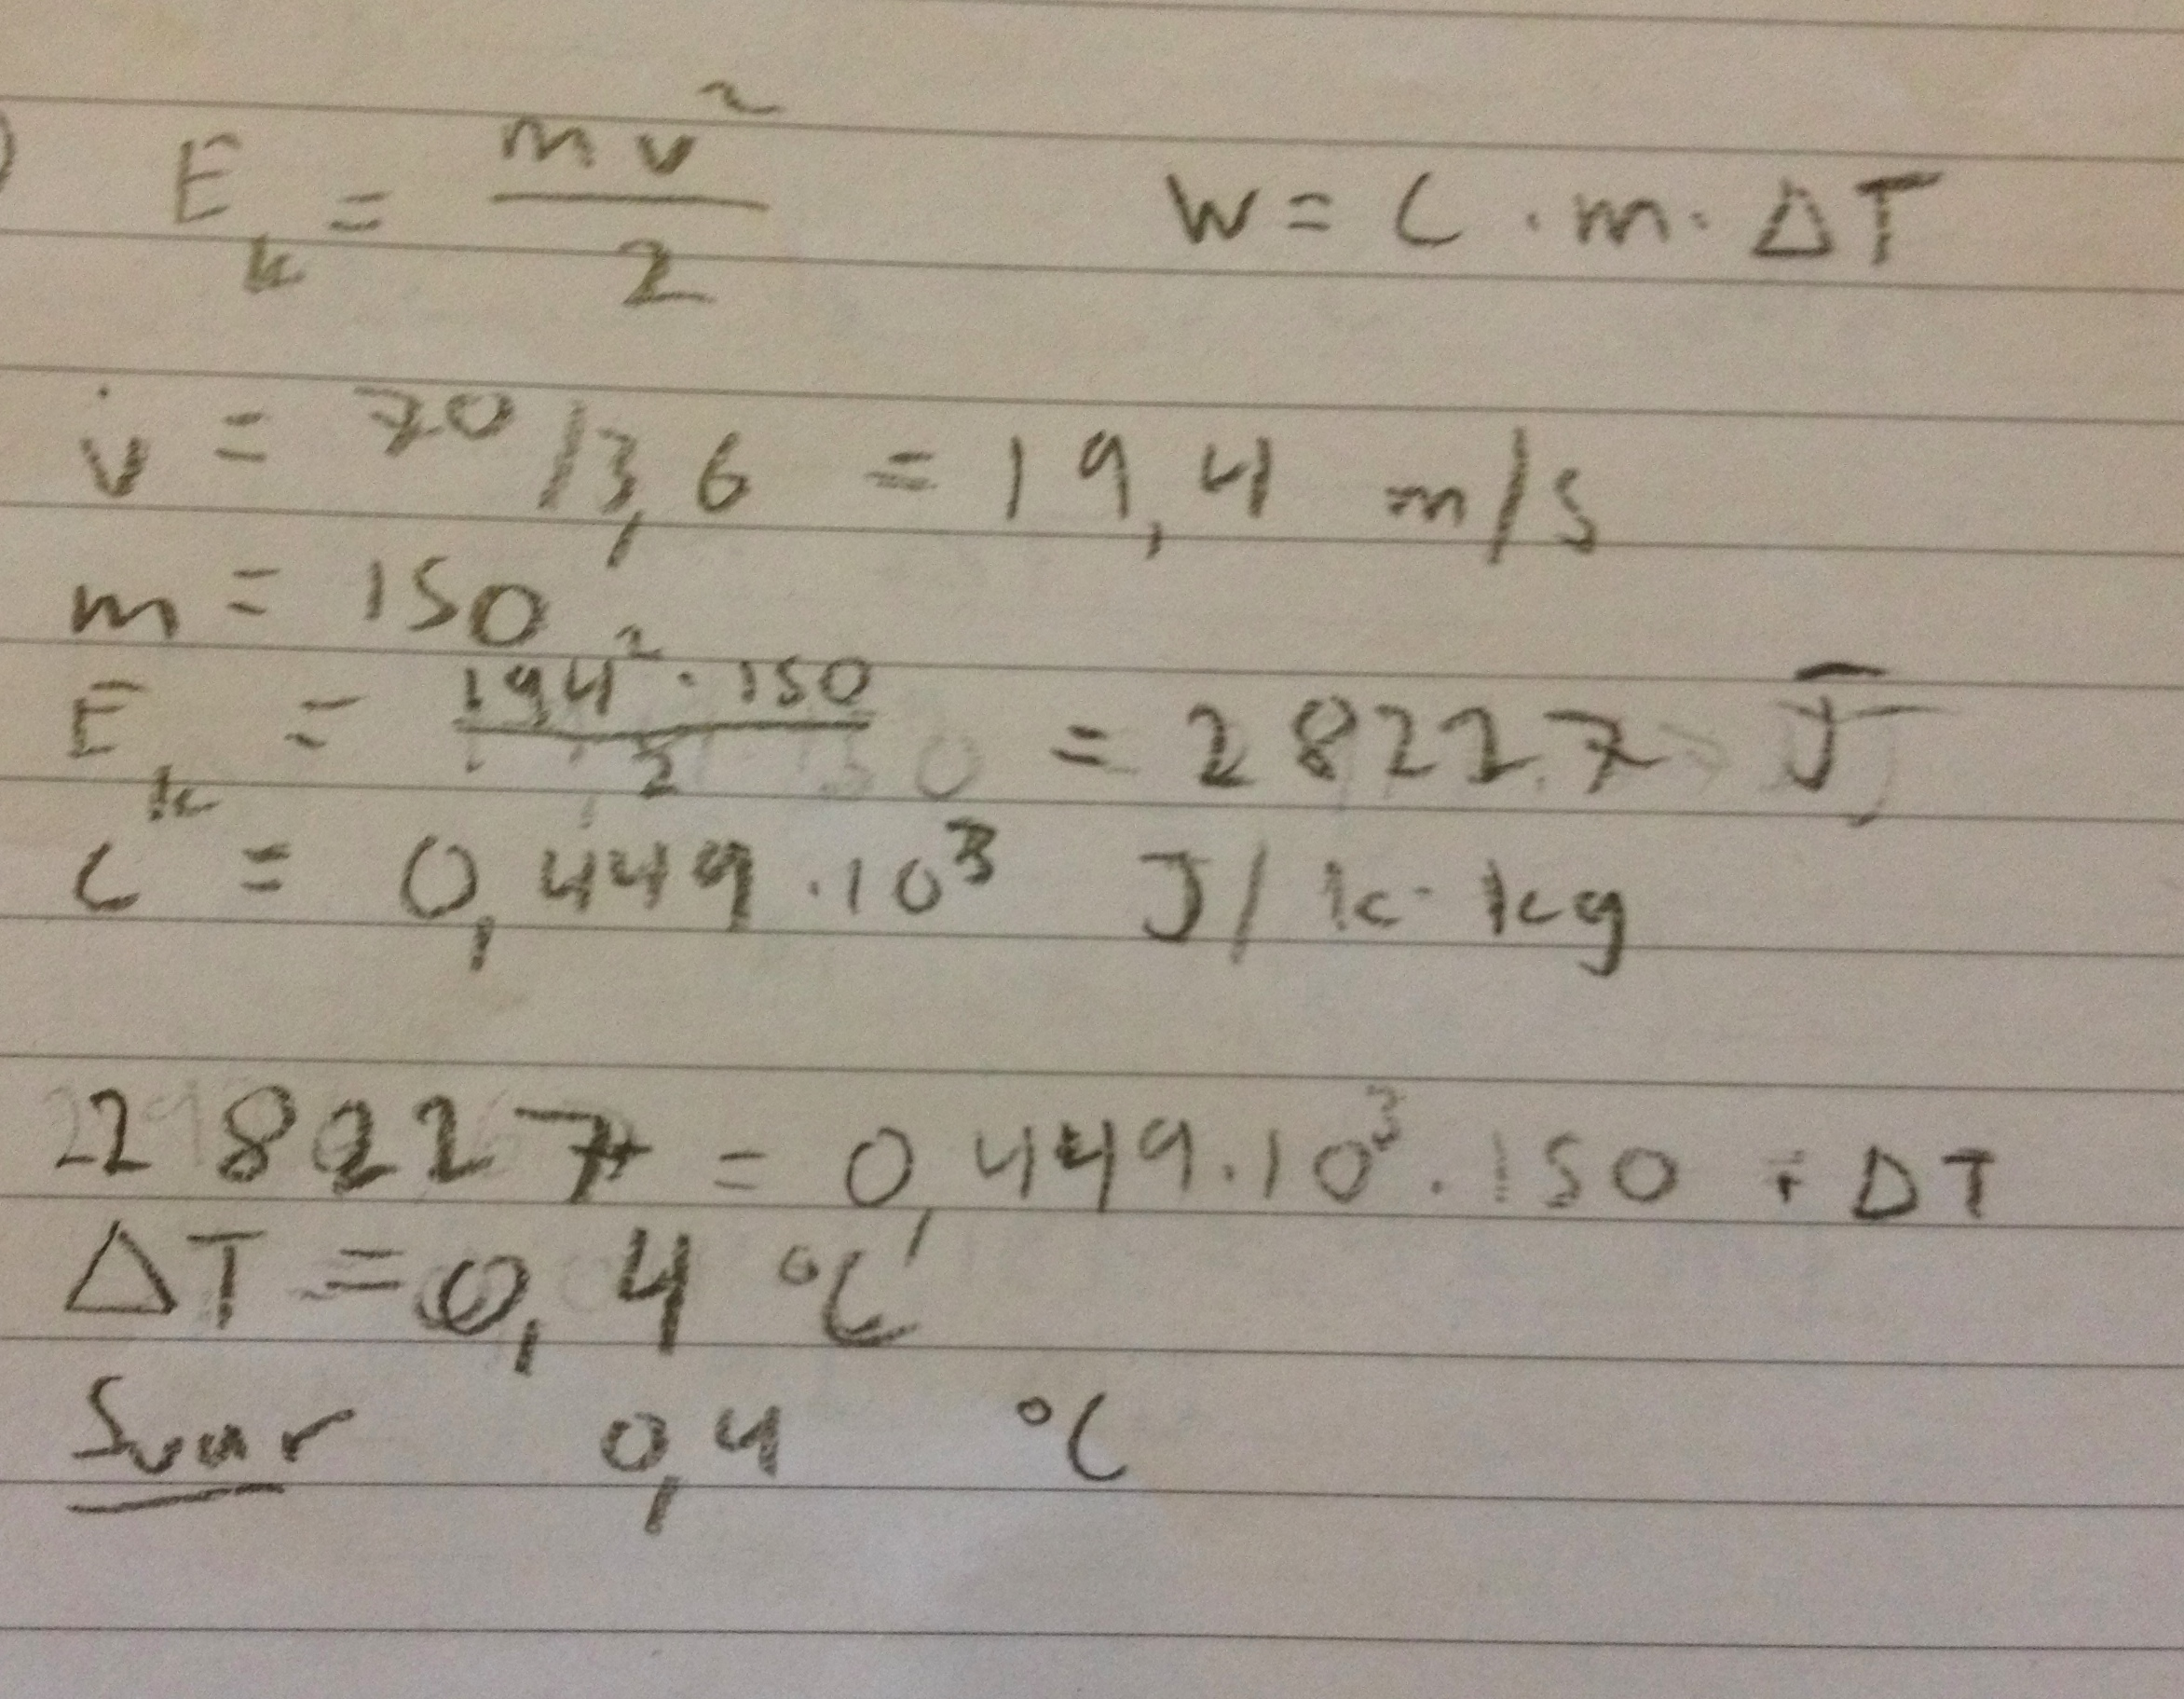 E_k = mv²/2    W = C · m · ΔT
v = 70/3,6 = 19,4 m/s
m = 150
E_k = 194² · 150 / 2 = 28227 J
C = 0,449 · 10³ J/k · kg
28227 = 0,449 · 10³ · 150 · ΔT
ΔT = 0,4 °C
Svar 0,4 °C